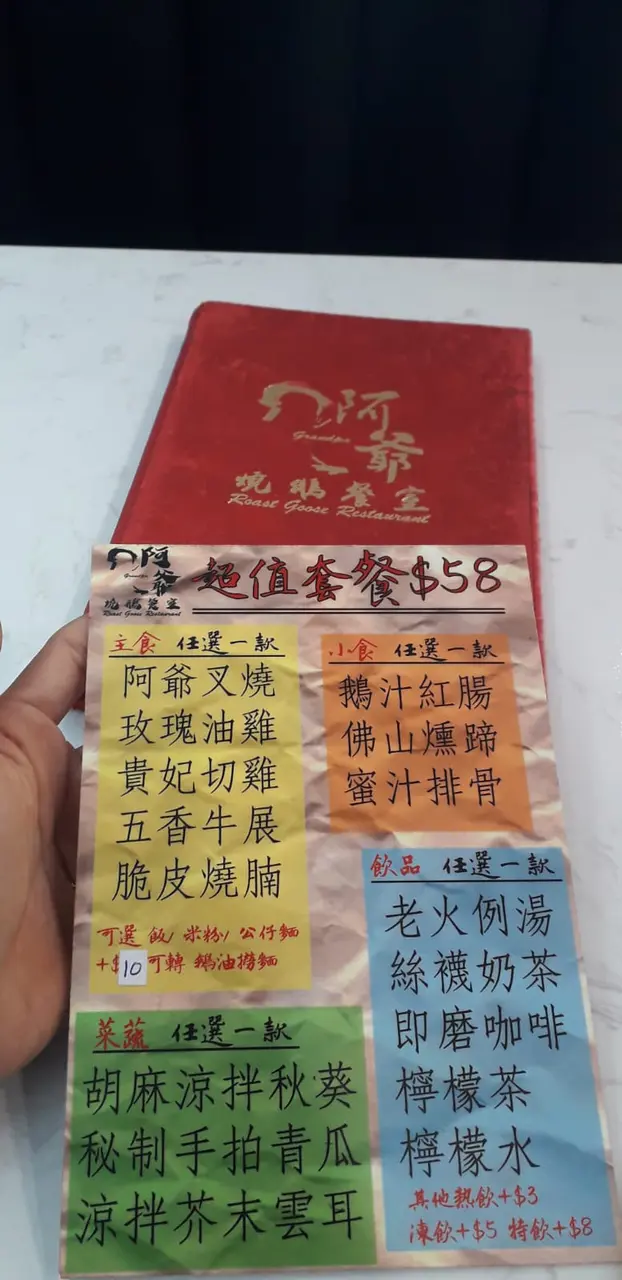 阿爺
Grandpa
燒鵝餐室
Roast Goose Restaurant
阿爺
Grandpa
燒鵝餐室
Roast Goose Restaurant
超值套餐$58
主食 任選一款
阿爺叉燒
玫瑰油雞
貴妃切雞
五香牛展
脆皮燒腩
可選 飯/米粉/公仔麵
+$10可轉 鵝油撈麵
小食 任選一款
鵝汁紅腸
佛山燻蹄
蜜汁排骨
菜蔬 任選一款
胡麻涼拌秋葵
秘制手拍青瓜
涼拌芥末雲耳
飲品 任選一款
老火例湯
絲襪奶茶
即磨咖啡
檸檬茶
檸檬水
其他熱飲+$3
凍飲+$5 特飲+$8